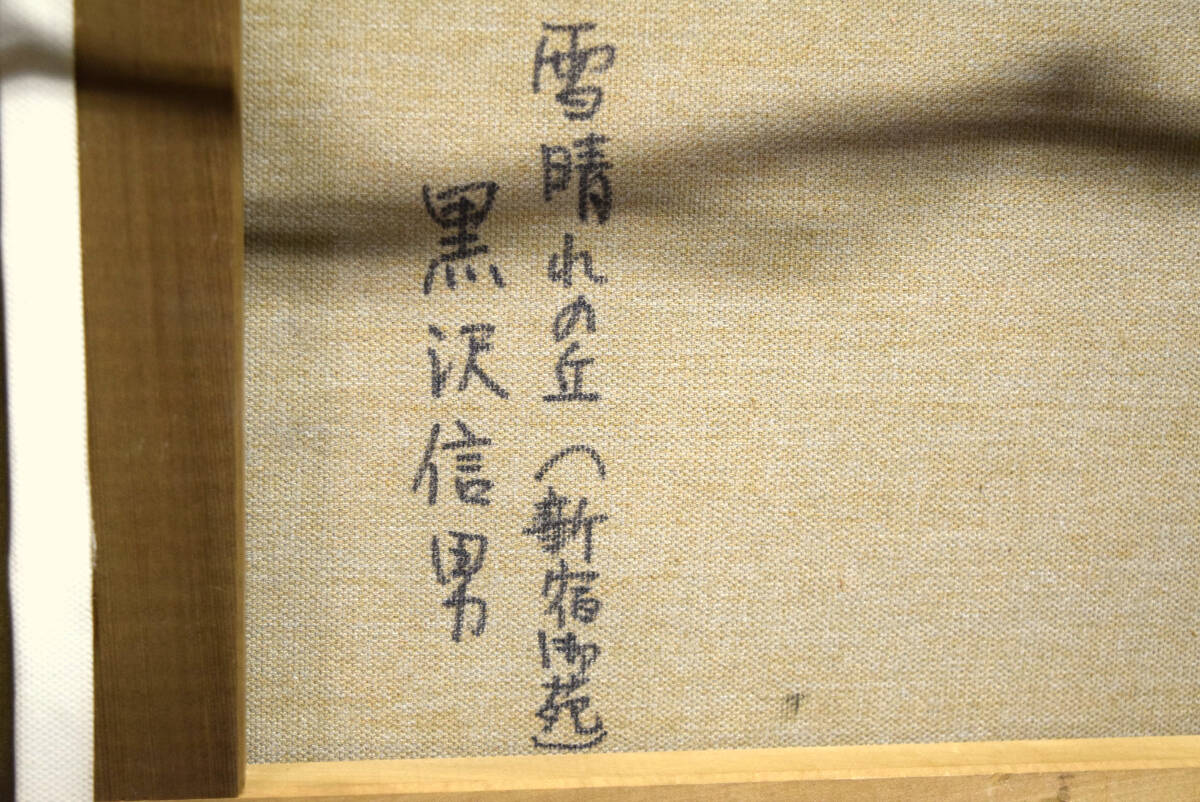 雪晴れの丘(新宿御苑)
黒沢信男